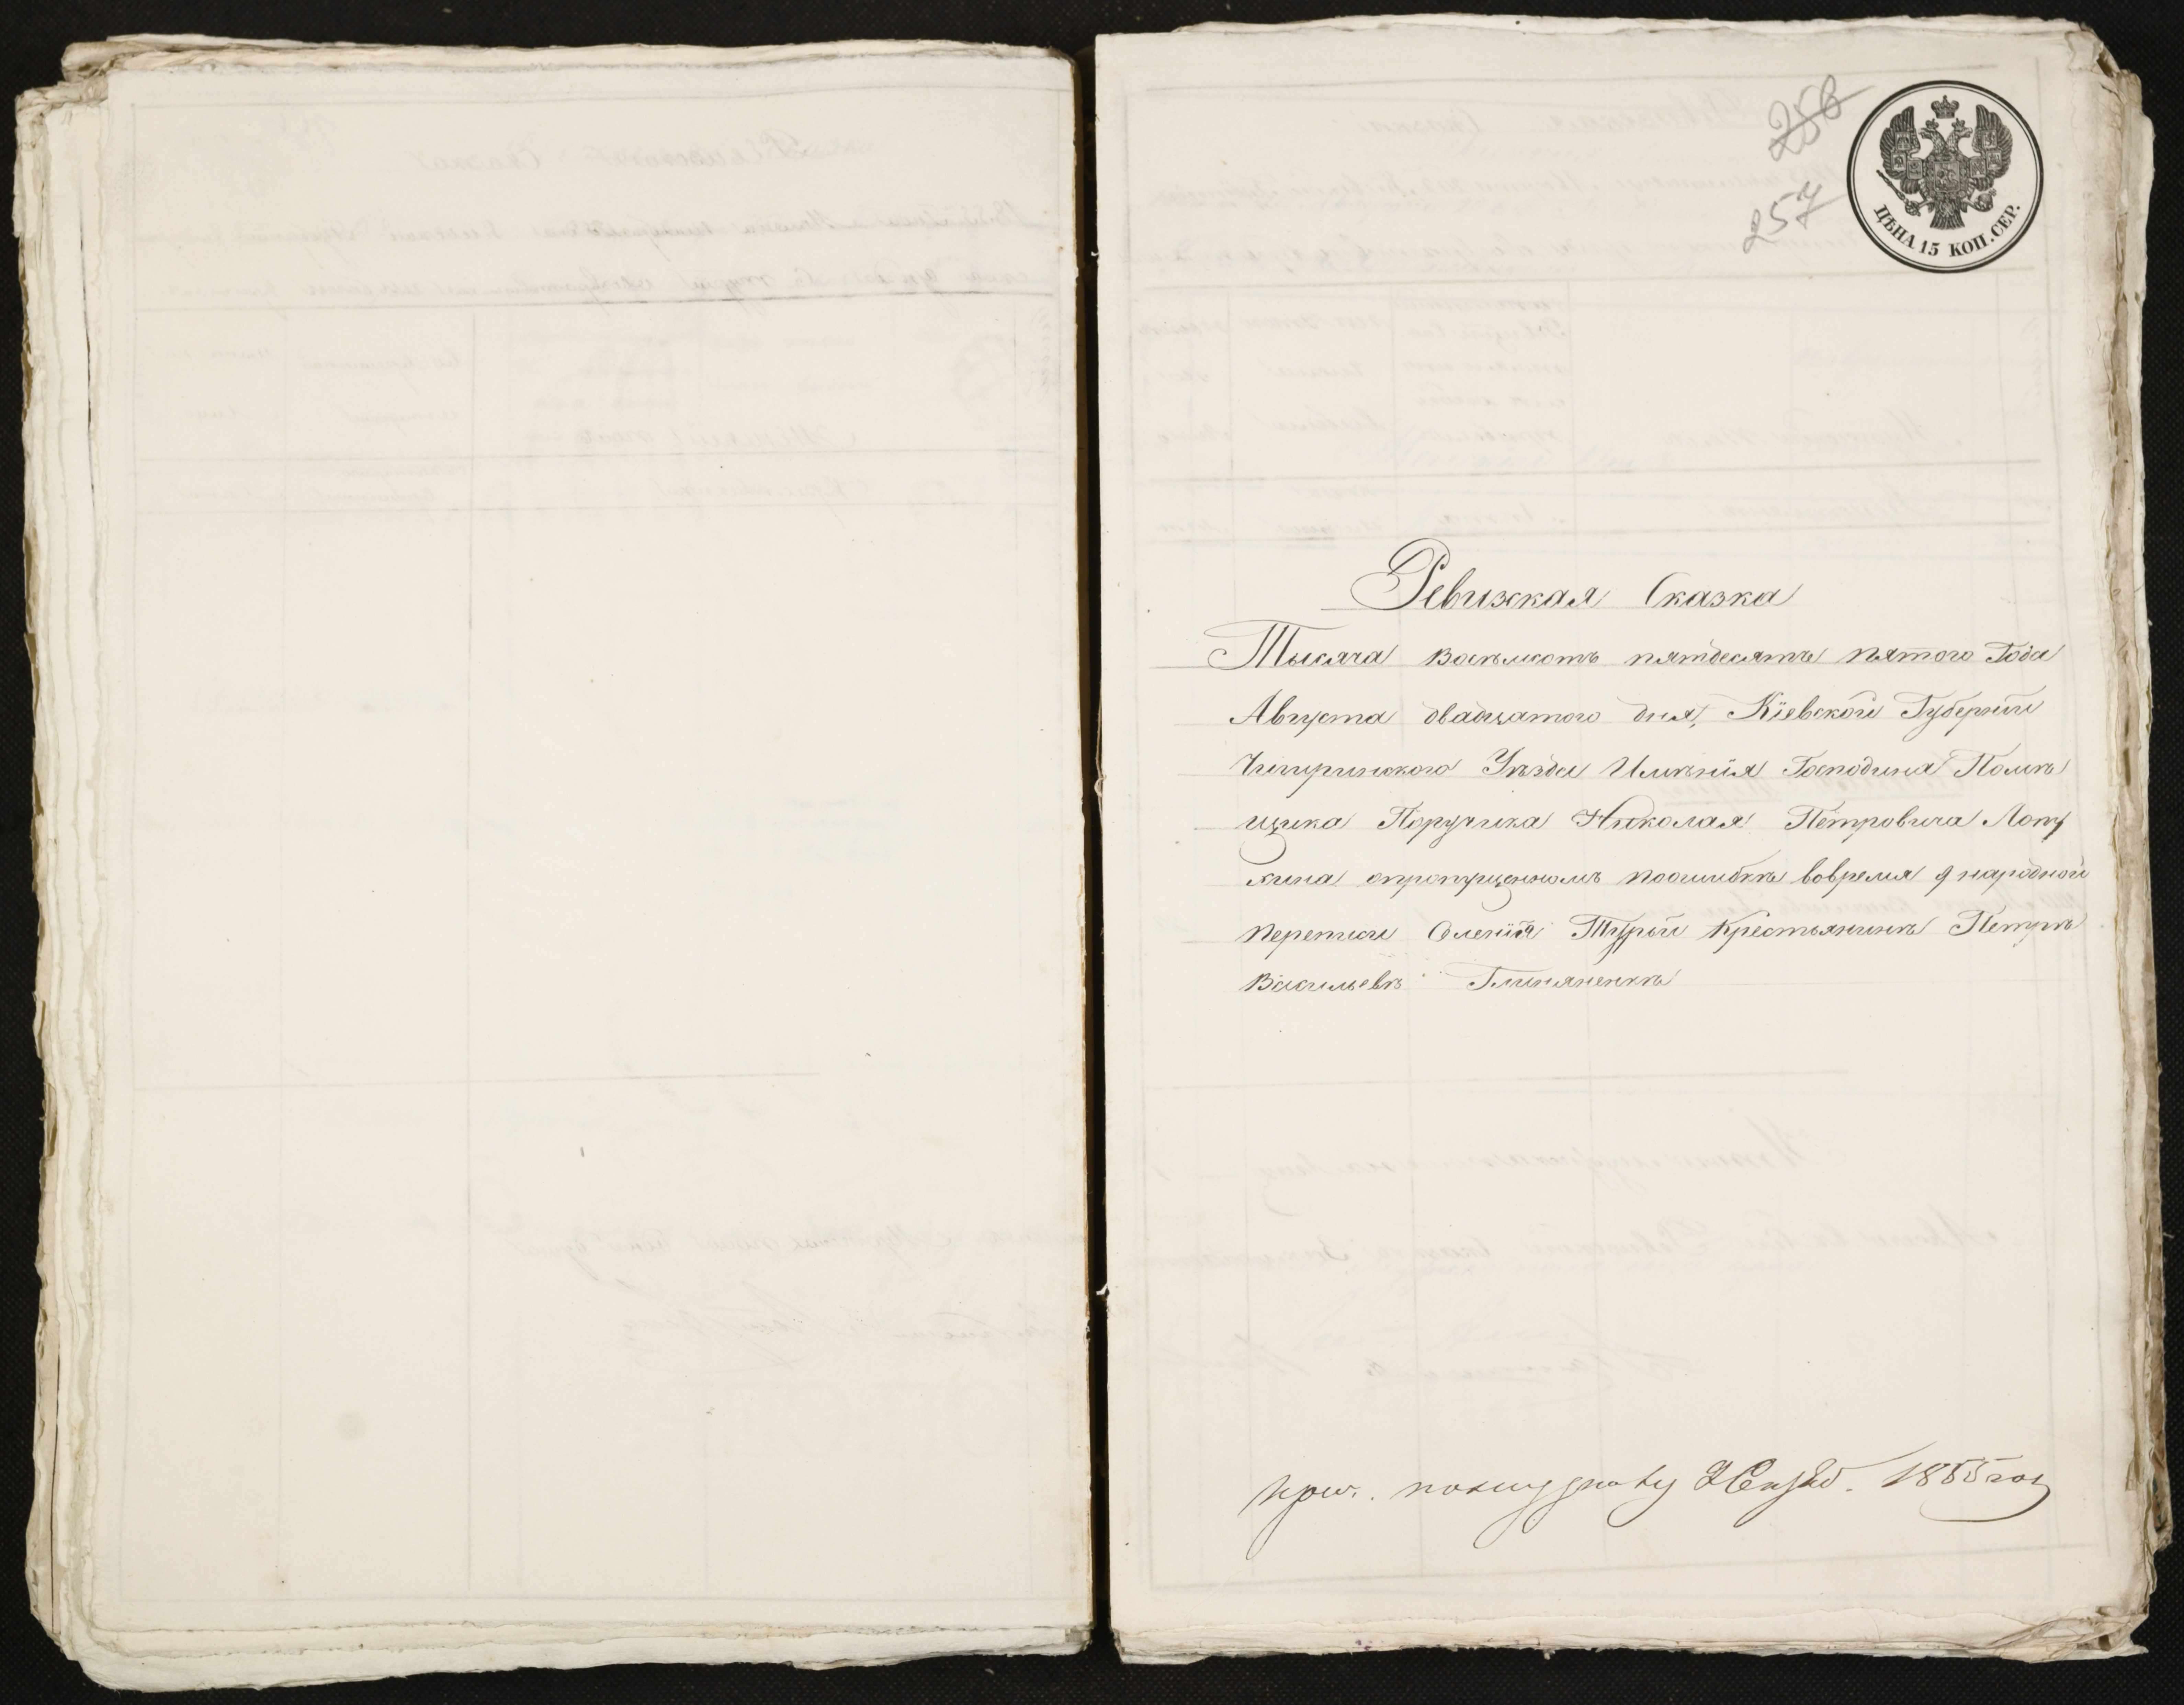 256
257
ЦѢНА 15 КОП. СЕР.
Ревизская Сказка
Тысяча восѣмсотъ пятдесятъ пятого Года
Августа двадцатого дня, Кіевской Губерніи
Чигиринского Уѣзда Имѣнія Господина Помѣ
щика Поручика Николая Петровича Лопу
хина опропущенномъ поошибкѣ вовремя 9 народной
переписи Селенія Туріи Крестьянинѣ Петрѣ
Васильевѣ Глиняненкѣ
1855 год